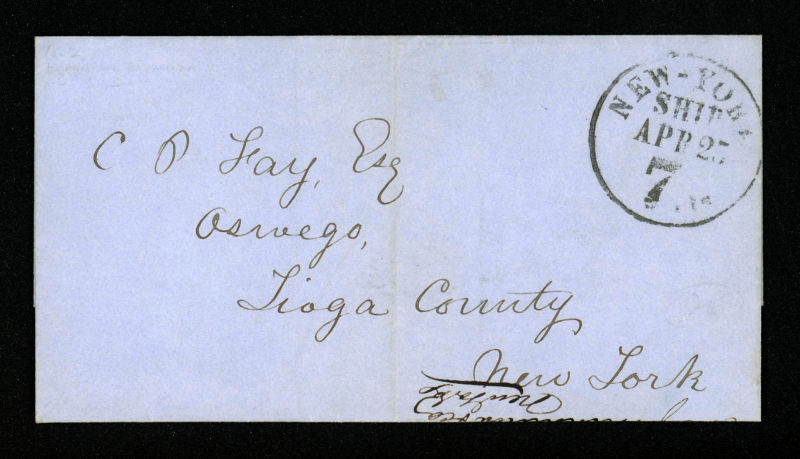 NEW-YORK
SHIP
APR 25
7
C P Fay, Esq
Oswego,
Tioga County
New York